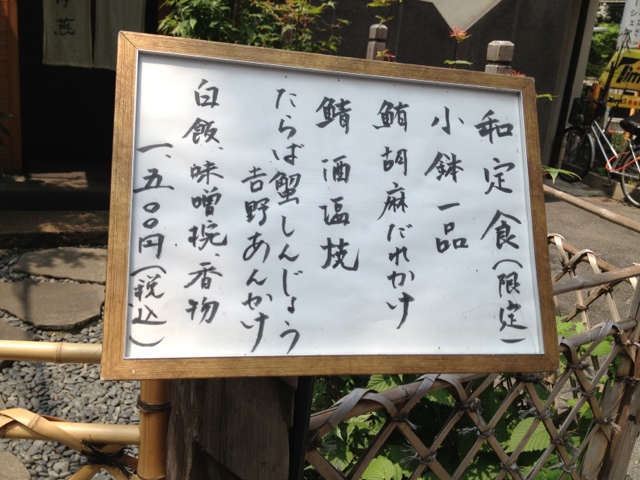 和定食(限定)
小鉢一品
鮪胡麻だれかけ
鯖酒塩焼
たらば蟹しんじょう
吉野あんかけ
白飯、味噌椀、香物
一、五〇〇円(税込)